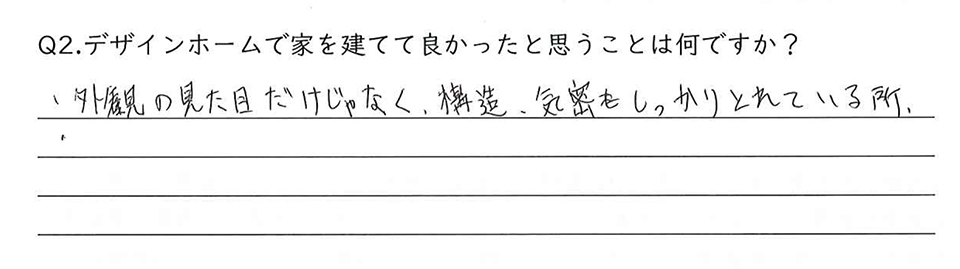 Q2.デザインホームで家を建てて良かったと思うことは何ですか？
・外観の見た目だけじゃなく、構造、気密もしっかりとれている所。
・